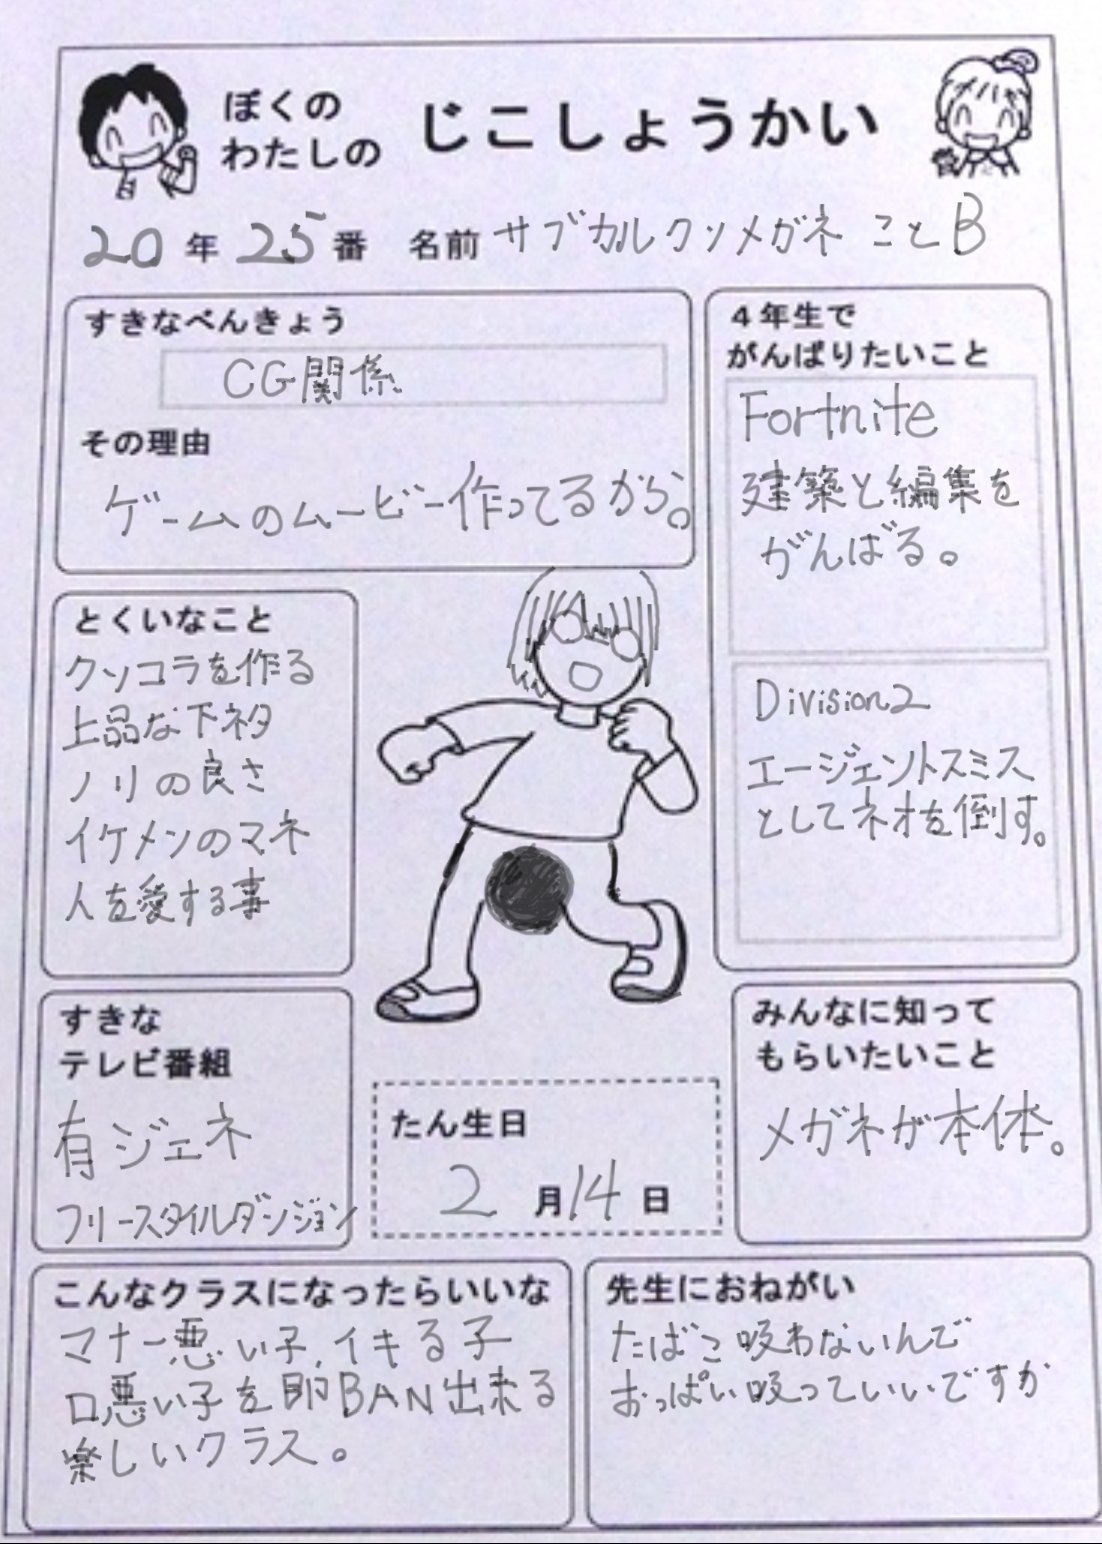 ぼくの
わたしの
じこしょうかい
20年 25番 名前 サブカルクソメガネ ことB
すきなべんきょう
CG関係
その理由
ゲームのムービー作ってるから。
4年生で
がんばりたいこと
Fortnite
建築と編集を
がんばる。
Division2
エージェントスミス
としてネオを倒す。
とくいなこと
クソコラを作る
上品な下ネタ
ノリの良さ
イケメンのマネ
人を愛する事
すきな
テレビ番組
有ジェネ
フリースタイルダンジョン
たん生日
2月14日
みんなに知って
もらいたいこと
メガネが本体。
こんなクラスになったらいいな
マナー悪い子、イキる子
口悪い子を即BAN出来る
楽しいクラス。
先生におねがい
たばこ吸わないんで
おっぱい吸っていいですか